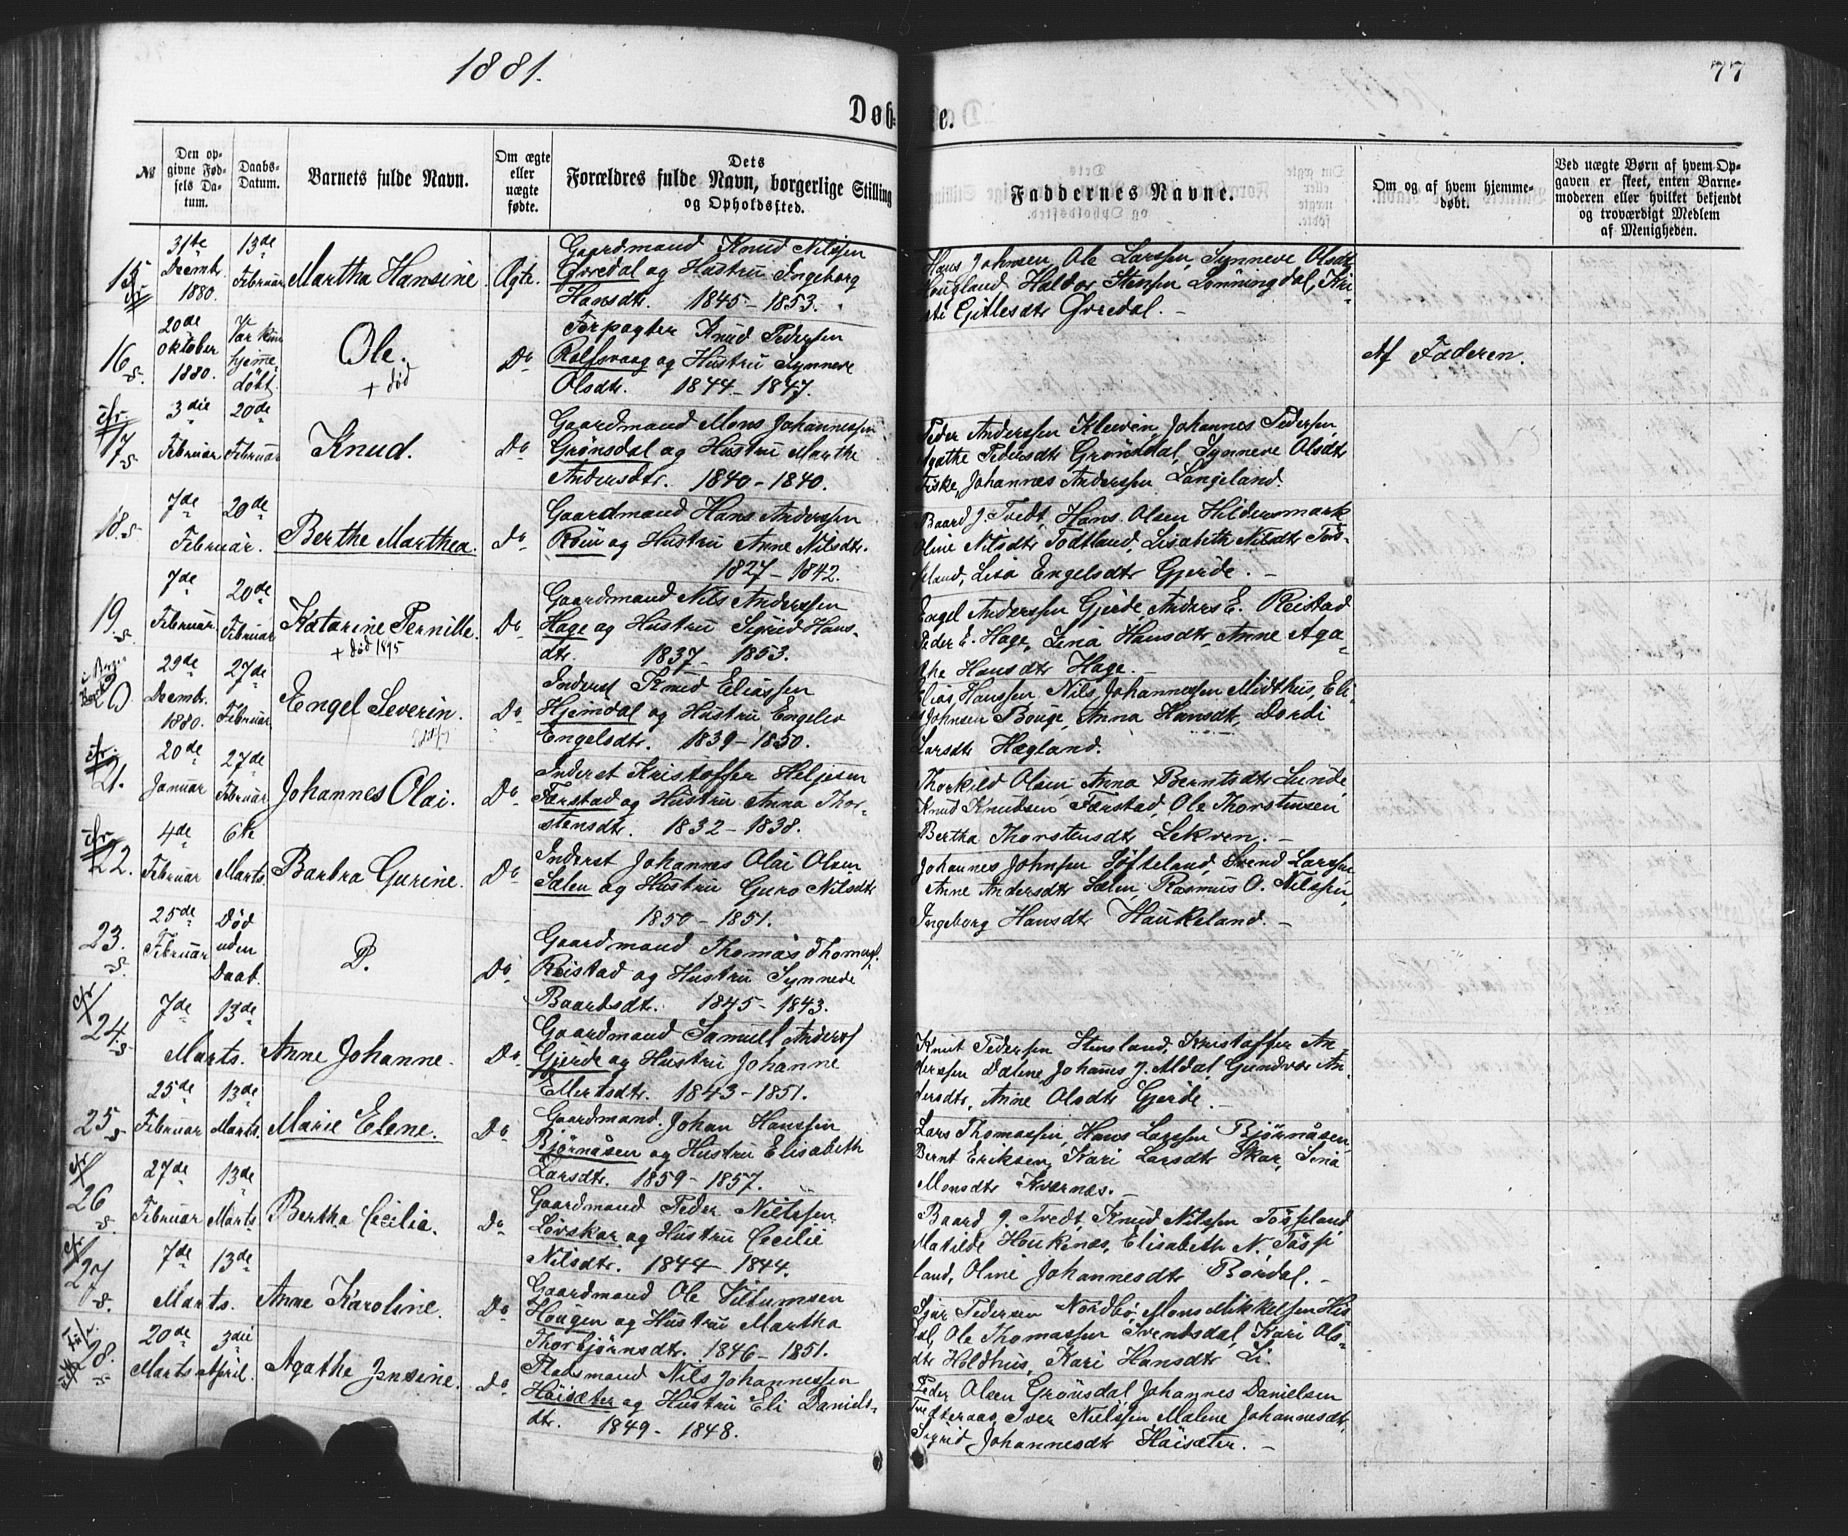 1881.
77
Døbte.
№
Den opgivne Fødsels Datum.
Daabs-Datum.
Barnets fulde Navn.
Om ægte eller uægte fødte.
Dets Forældres fulde Navn, borgerlige Stilling og Opholdssted.
Faddernes Navne.
Om og af hvem hjemmedøbt.
Ved uægte Børn af hvem Opgaven er skeet, enten Barnemoderen eller hvilket bekjendt og troværdigt Medlem af Menigheden.
15
31te Decembr. 1880.
13de Februar
Martha Hansine
Ægte.
Gaardmand Knud Nilssen
Øvredal og Hustru Ingeborg
Hansdtr. 1845 - 1853.
Hans Johnsen, Ole Larssen, Synneve Olsdtr
Hougland, Haldor Stensen Lønningdal, Kri-
sti Gitlesdtr Øvredal. -
16 s.
20de Oktober 1880.
Var kun hjemme døbt.
Ole.
+ død
Do
Forpagter Knud Pedersen
Rolfsvaag og Hustru Synneve
Olsdtr. 1844 - 1847.
Af Faderen.
cfr.
17 s.
3die Februar
20de Februar
Knud.
Do
Gaardmand Mons Johannessen
Grønsdal og Hustru Marthe
Andersdtr. 1840 - 1840.
Peder Anderssen Kleiven, Johannes Pedersen,
Agathe Pedersdtr Grønsdal, Synneve Olsdtr
Fiske, Johannes Anderssen Langeland.
18. s
7de
20de
Februar.
Berthe Marthea.
Do
Gaardmand Hans Anderssen
Røin og Hustru Anne Nilsdtr.
1827 - 1842.
Baard J. Tvedt, Hans Olsen Hildersmark
Oline Nilsdtr Todtland, Lisabeth Nilsdtr Tøs-
seland, Lisa Engelsdtr Gjerde. -
19. s.
7de Februar
20de Februar
Katarine Pernille.
+ død 1895
Do
Gaardmand Nils Anderssen
Hage og Hustru Sigrid Hans-
dtr. 1837 - 1853.
Engel Anderssen Gjerde, Anders E. Reistad
Peder E. Hage, Lina Hansdtr, Anne Aga-
the Hansdtr Hage. -
20
29de Decembr. 1880.
27de Februar.
Engel Severin.
Do
Inderst Knud Eliassen
Hjemdal og Hustru Engelev
Engelsdtr. 1839 - 1850.
Elias Hanssen, Nils Johannessen Midthus, Eli-
as Johnsen Bouge, Anna Hansdtr, Dordi
Larsdtr Hægland.
cfr.
21.
20de Januar
27de Februar
Johannes Olai.
Do
Inderst Kristoffer Heljesen
Færstad og Hustru Anna Thor-
stensdtr. 1832 - 1838.
Thorkild Olsen, Anna Berntsdtr Lunde,
Knud Knudsen Færstad, Ole Thorstensen
Bertha Thorstensdtr Lekven. -
cfr.
22.
4de Februar
6te Marts.
Barbra Gurine.
Do
Inderst Johannes Olai Olsen
Sælen og Hustru Guro Nilsdtr
1850 - 1851.
Johannes Johnsen Søfteland, Svend Larssen
Anne Andersdtr Sælen, Rasmus O. Nilssen,
Ingeborg Hansdtr Haukeland. -
23. s.
25de Februar
Død uden Daab.
D.
Do
Gaardmand Thomas Thomass.
Reistad og Hustru Synneve
Baardsdtr. 1845 - 1843.
cfr
24. s
7de
13de
Marts.
Anne Johanne.
Do
Gaardmand Samuel Anders
Gjerde og Hustru Johanne
Elertsdtr. 1843 - 1851.
Knut Pedersen Stensland, Kristoffer An-
derssen Dalene, Johanes J. Aldal, Gundvor An-
dersdtr, Anne Olsdtr Gjerde. -
25 s
25de Februar
13de Marts.
Marie Elene.
Do
Gaardmand. Johan Hanssen
Bjørnåsen og Hustru Elisabeth
Larsdtr. 1859 - 1857.
Lars Thomassen, Hans Larssen Bjørnåsen,
Bernt Eriksen, Kari Larsdtr Skar, Sina
Monsdtr Kvernes. -
cfr
26 s.
27de Februar
13de Marts
Bertha Cecilia.
Do
Gaardmand Peder Nielssen
Løvskar og Hustru Cecilie
Nilsdtr. 1844 - 1844.
Baard J. Tvedt, Knud Nilssen Tøsseland
Matilde Houkenes, Elisabeth N. Tøsse
land, Oline Johannesdtr Bordal. -
cfr
27 s.
7de
13de
Marts.
Anne Karoline.
Do
Gaardmand Ole Villumsen
Hougen og Hustru Martha
Thorbjørnsdtr. 1846 - 1851.
Sjur Pedersen Nordbø, Mons Mikkelssen His-
dal, Ole Thomassen Svendsdal, Kari Ols-
dtr Holdhus, Kari Hansdtr Li.
28. s
20de Marts
3die April.
Agathe Jensine.
Do
Pladsmand Nils Johannessen
Høisæter og Hustru Eli Daniels-
dtr. 1849 - 1848.
Peder Olsen Grønsdal, Johannes Danielsen
Tvedteraas, Iver Nielssen, Malene Johannesdtr,
Sigrid Johannesdtr Høisæter. -